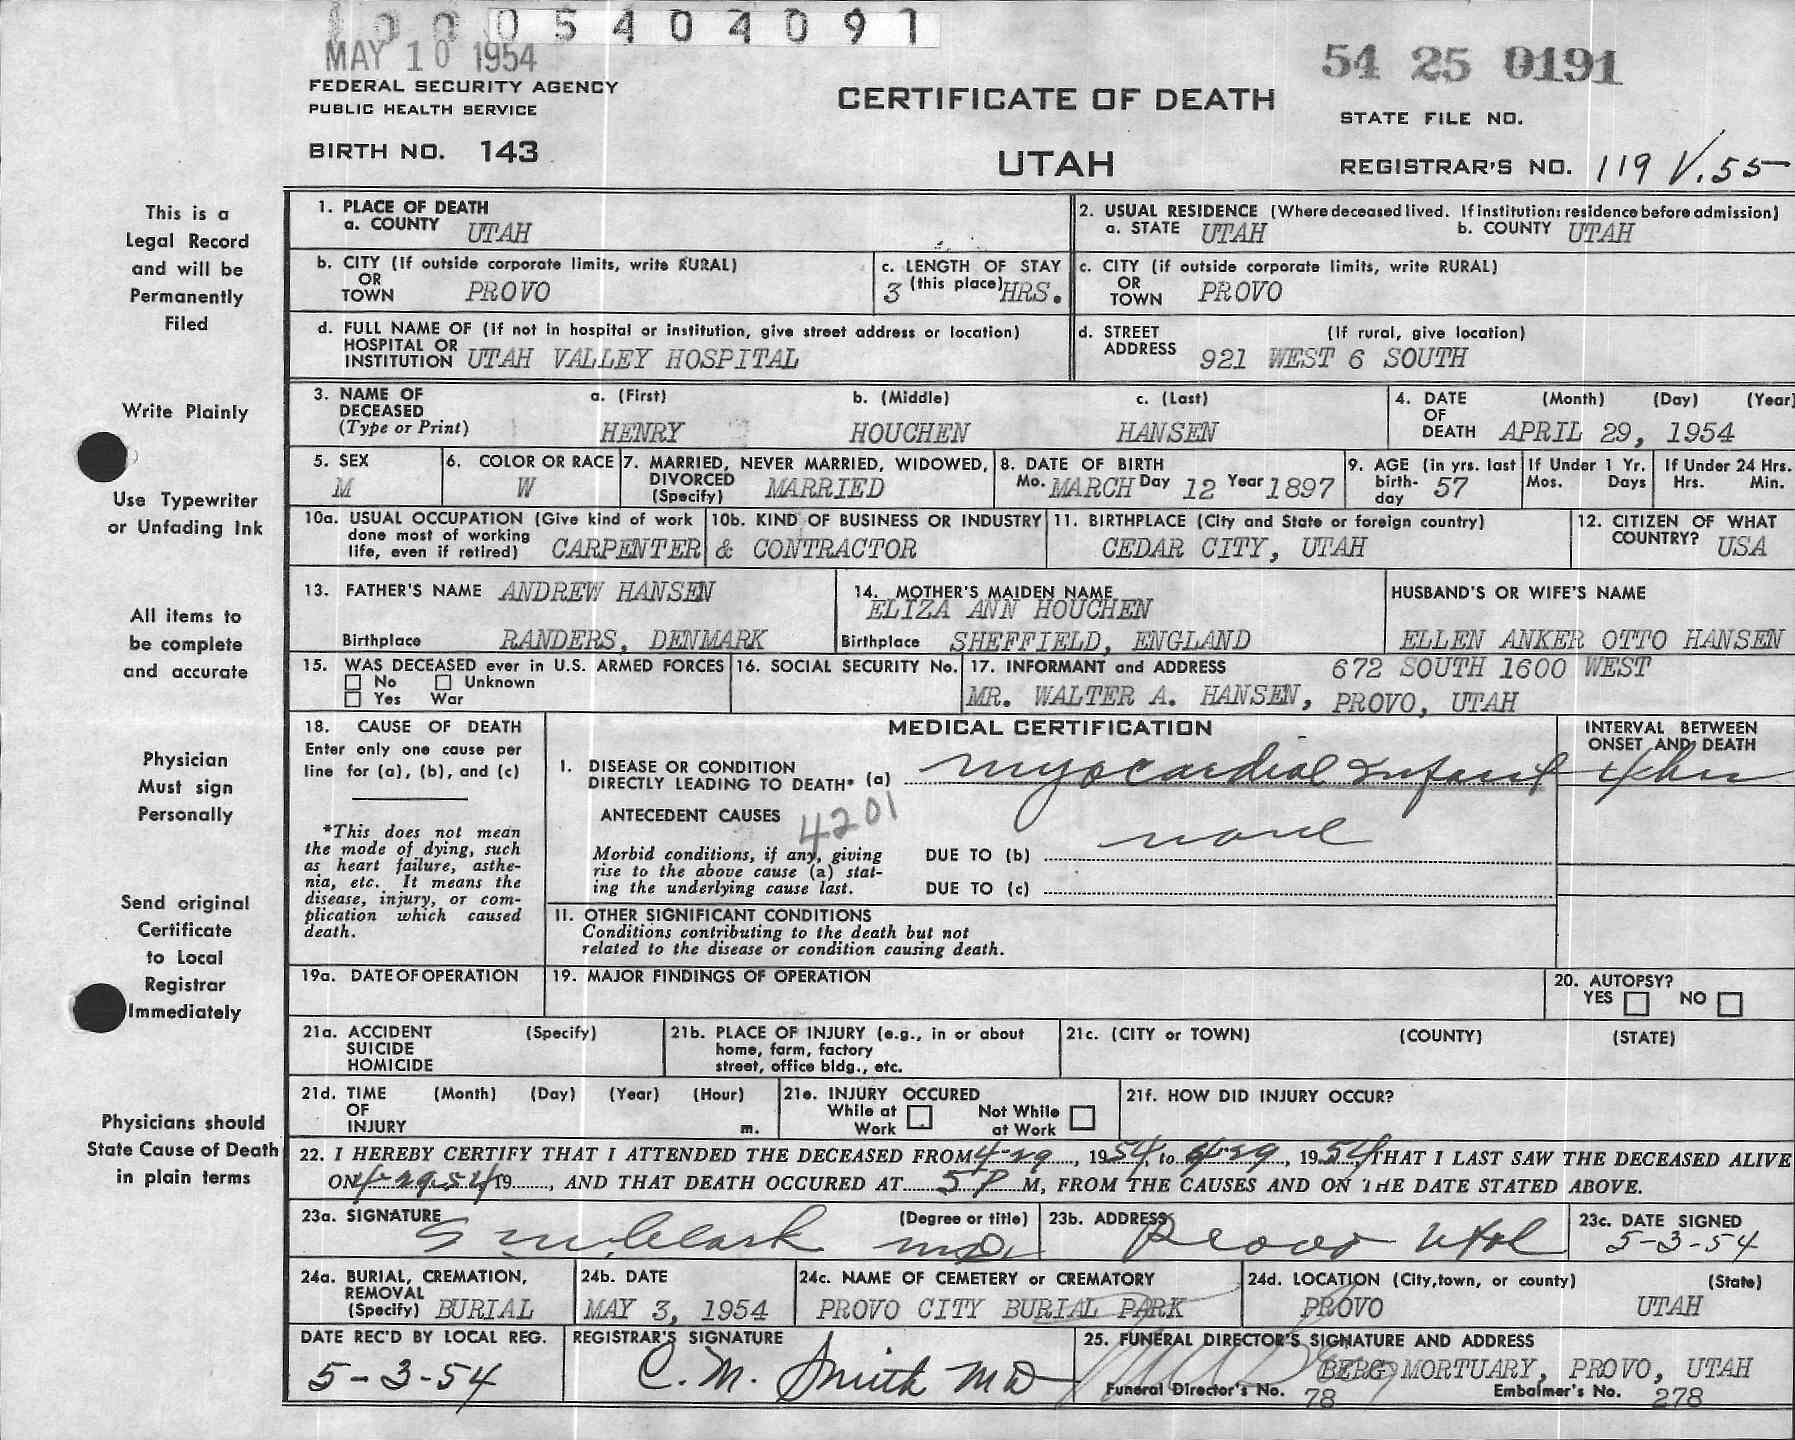 1000540 4091
MAY 10 1954
54 25 0191
FEDERAL SECURITY AGENCY
PUBLIC HEALTH SERVICE
CERTIFICATE OF DEATH
STATE FILE NO.
BIRTH NO. 143
UTAH
REGISTRAR'S NO. 119 V.55
This is a
Legal Record
and will be
Permanently
Filed
Write Plainly
Use Typewriter
or Unfading Ink
All items to
be complete
and accurate
Physician
Must sign
Personally
Send original
Certificate
to Local
Registrar
Immediately
Physicians should
State Cause of Death
in plain terms
1. PLACE OF DEATH
a. COUNTY UTAH
2. USUAL RESIDENCE (Where deceased lived. If institution: residence before admission)
a. STATE UTAH b. COUNTY UTAH
b. CITY (If outside corporate limits, write RURAL)
OR
TOWN PROVO
c. LENGTH OF STAY
(this place)
3 HRS.
c. CITY (if outside corporate limits, write RURAL)
OR
TOWN PROVO
d. FULL NAME OF (If not in hospital or institution, give street address or location)
HOSPITAL OR
INSTITUTION UTAH VALLEY HOSPITAL
d. STREET (If rural, give location)
ADDRESS 921 WEST 6 SOUTH
3. NAME OF
DECEASED
(Type or Print)
a. (First) b. (Middle) c. (Last)
HENRY HOUCHEN HANSEN
4. DATE (Month) (Day) (Year)
OF
DEATH APRIL 29, 1954
5. SEX
M
6. COLOR OR RACE
W
7. MARRIED, NEVER MARRIED, WIDOWED,
DIVORCED
(Specify) MARRIED
8. DATE OF BIRTH
Mo. MARCH Day 12 Year 1897
9. AGE (in yrs. last
birth-
day 57
If Under 1 Yr.
Mos. Days
If Under 24 Hrs.
Hrs. Min.
10a. USUAL OCCUPATION (Give kind of work
done most of working
life, even if retired) CARPENTER
10b. KIND OF BUSINESS OR INDUSTRY
& CONTRACTOR
11. BIRTHPLACE (City and State or foreign country)
CEDAR CITY, UTAH
12. CITIZEN OF WHAT
COUNTRY? USA
13. FATHER'S NAME ANDREW HANSEN
Birthplace RANDERS, DENMARK
14. MOTHER'S MAIDEN NAME
ELIZA ANN HOUCHEN
Birthplace SHEFFIELD, ENGLAND
HUSBAND'S OR WIFE'S NAME
ELLEN ANKER OTTO HANSEN
15. WAS DECEASED ever in U.S. ARMED FORCES
No Unknown
Yes War
16. SOCIAL SECURITY No.
17. INFORMANT and ADDRESS 672 SOUTH 1600 WEST
MR. WALTER A. HANSEN, PROVO, UTAH
18. CAUSE OF DEATH
Enter only one cause per
line for (a), (b), and (c)
*This does not mean
the mode of dying, such
as heart failure, asthe-
nia, etc. It means the
disease, injury, or com-
plication which caused
death.
MEDICAL CERTIFICATION
INTERVAL BETWEEN
ONSET AND DEATH
I. DISEASE OR CONDITION
DIRECTLY LEADING TO DEATH* (a) myocardial infarct 4 hrs
ANTECEDENT CAUSES 4201
Morbid conditions, if any, giving
rise to the above cause (a) stat-
ing the underlying cause last.
DUE TO (b) none
DUE TO (c)
II. OTHER SIGNIFICANT CONDITIONS
Conditions contributing to the death but not
related to the disease or condition causing death.
19a. DATE OF OPERATION
19. MAJOR FINDINGS OF OPERATION
20. AUTOPSY?
YES NO
21a. ACCIDENT (Specify)
SUICIDE
HOMICIDE
21b. PLACE OF INJURY (e.g., in or about
home, farm, factory
street, office bldg., etc.
21c. (CITY or TOWN) (COUNTY) (STATE)
21d. TIME (Month) (Day) (Year) (Hour)
OF
INJURY m.
21e. INJURY OCCURED
While at Not While
Work at Work
21f. HOW DID INJURY OCCUR?
22. I HEREBY CERTIFY THAT I ATTENDED THE DECEASED FROM 4-29, 1954, to 4-29, 1954, THAT I LAST SAW THE DECEASED ALIVE
ON 4-29-54 19......, AND THAT DEATH OCCURED AT 5 P M, FROM THE CAUSES AND ON THE DATE STATED ABOVE.
23a. SIGNATURE (Degree or title)
Clark MD
23b. ADDRESS
Provo Utah
23c. DATE SIGNED
5-3-54
24a. BURIAL, CREMATION,
REMOVAL
(Specify) BURIAL
24b. DATE
MAY 3, 1954
24c. NAME OF CEMETERY or CREMATORY
PROVO CITY BURIAL PARK
24d. LOCATION (City, town, or county) (State)
PROVO UTAH
DATE REC'D BY LOCAL REG.
5-3-54
REGISTRAR'S SIGNATURE
C. M. Smith MD
25. FUNERAL DIRECTOR'S SIGNATURE AND ADDRESS
BERG MORTUARY, PROVO, UTAH
Funeral Director's No. 78 Embalmer's No. 278